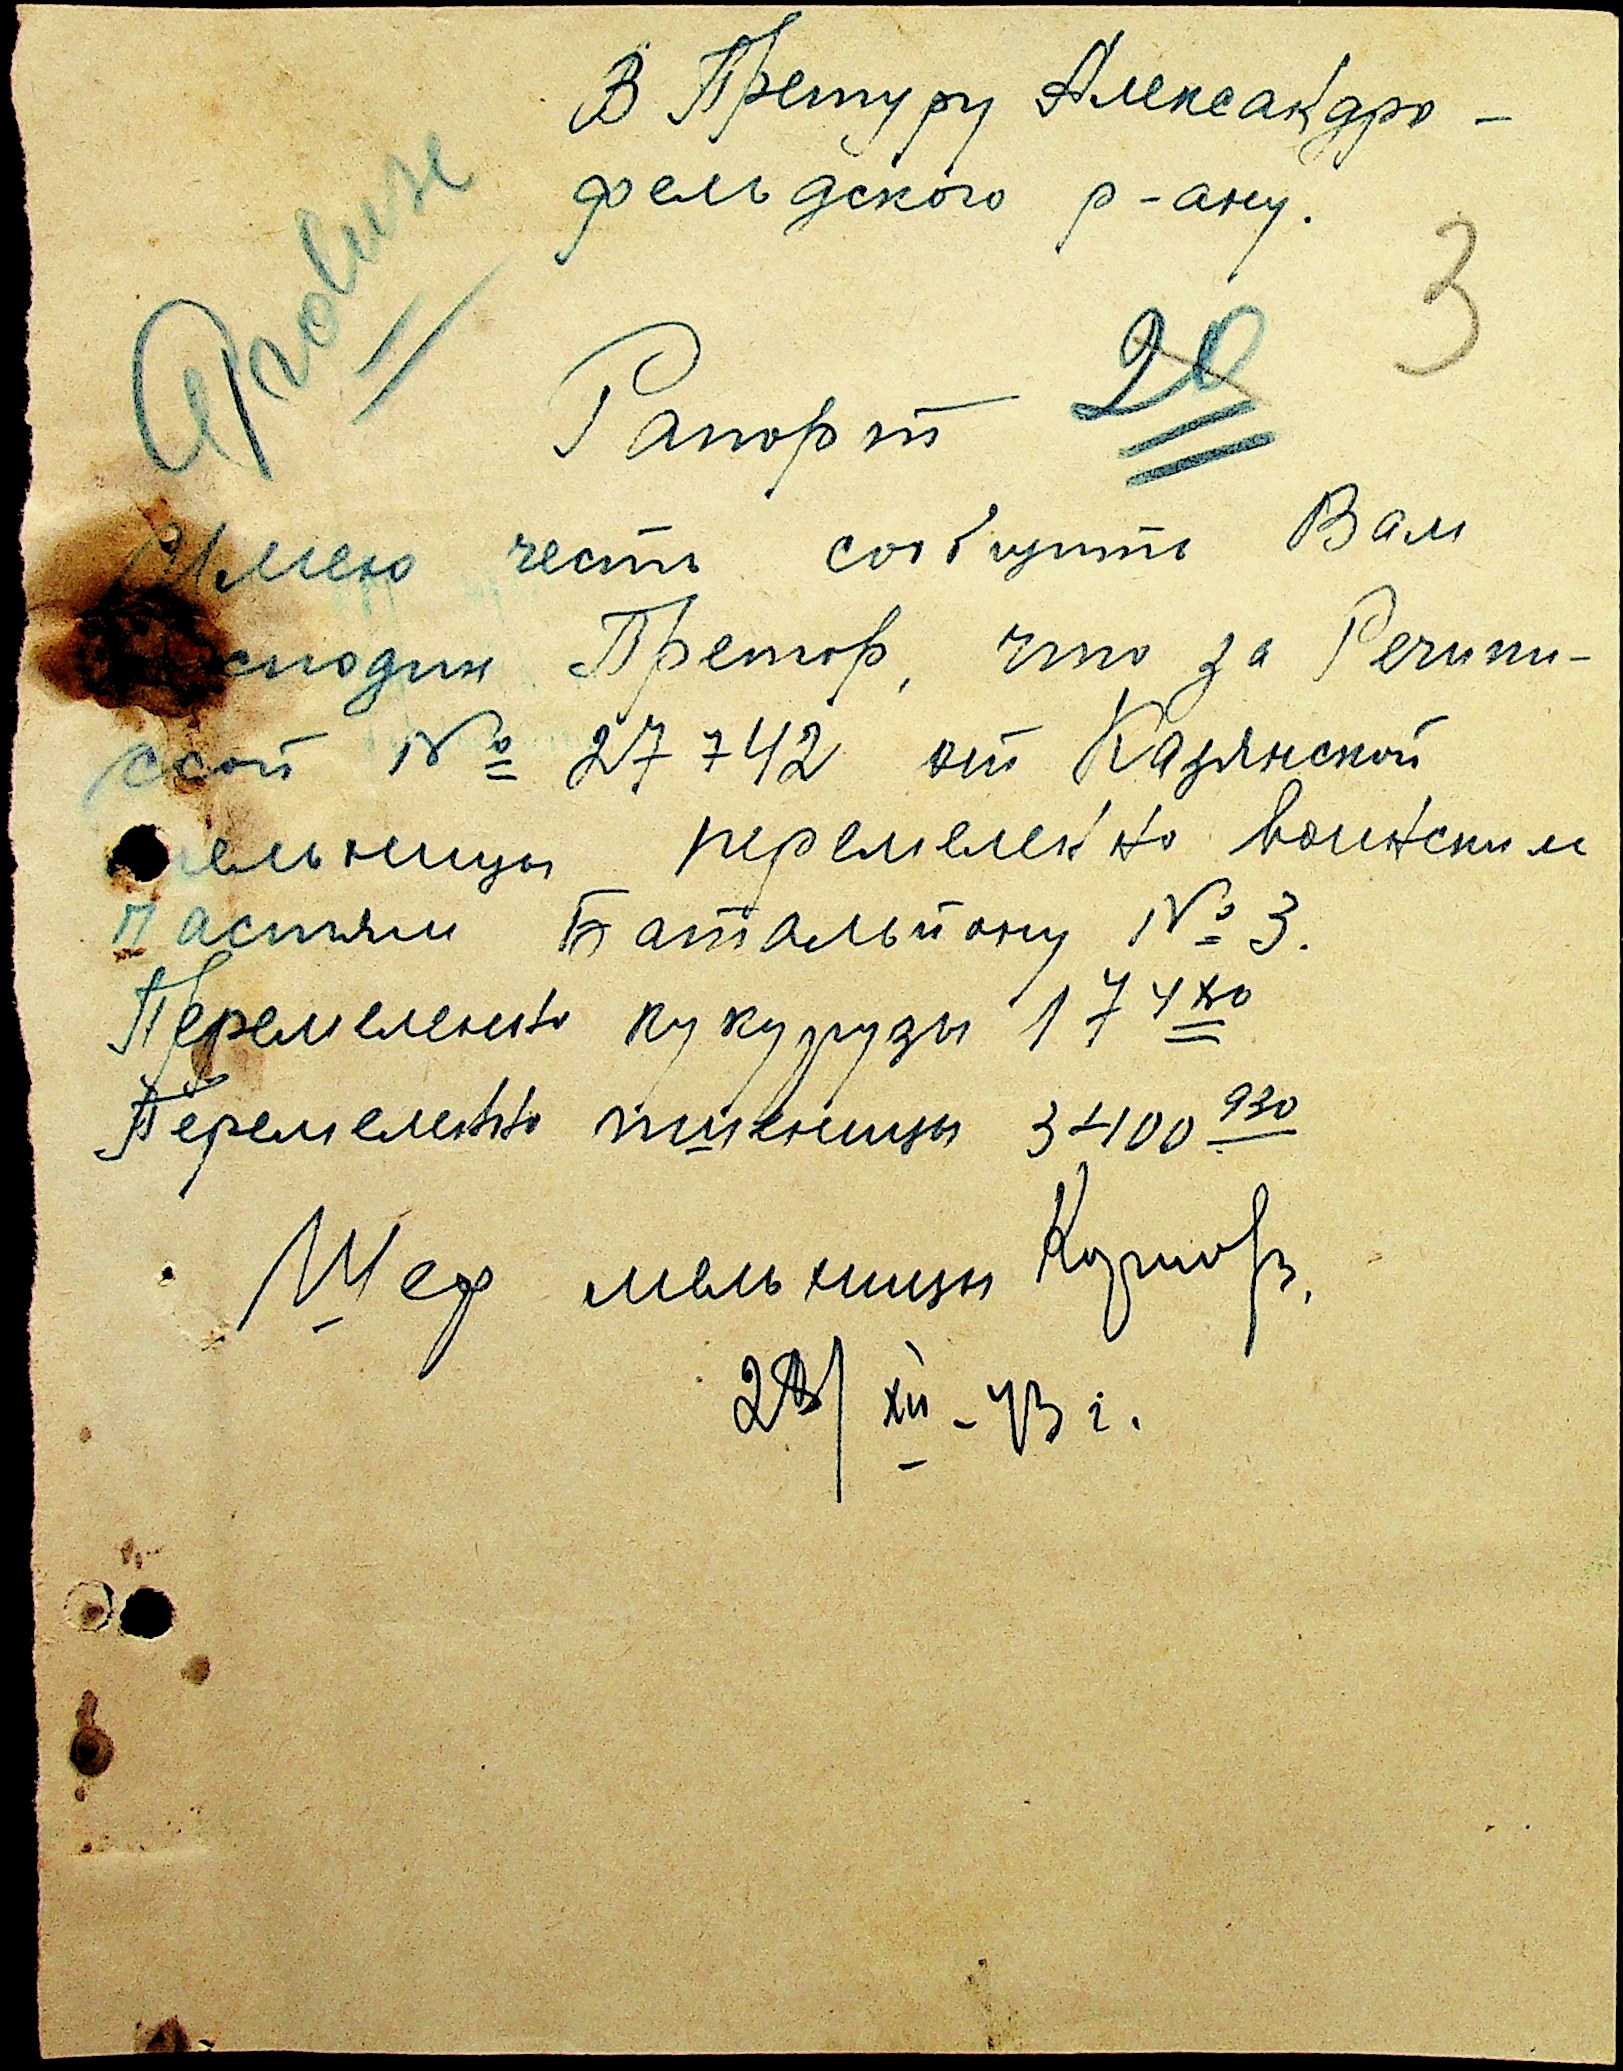 В Претуру Александро-
фельдского р-ану.
3
20
Рапорт
Имею честь сообщить Вам
сподин Претор, что заРечипи-
ссой № 27742 от Казянской
ельницы перемеленно воинским
частям Батальйону № 3.
Перемеленно кукурузы 174
Перемеленно пшеницы 3400 930
Шеф мельницы
XII - 43 г.